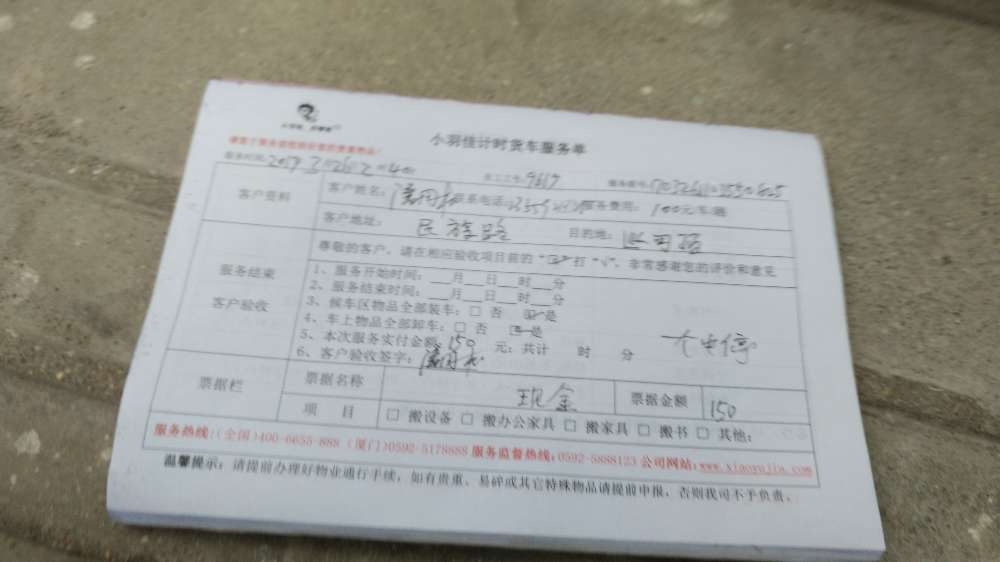 小羽佳计时货车服务单
服务时间: 员工工号: 9617 服务单号:
客户资料 客户姓名: 联系电话: 服务费用: 100元/车/趟
客户地址: 民族路 目的地:
尊敬的客户，请在相应验收项目前的“□”打“√”，非常感谢您的评价和意见
服务结束
客户验收
1、服务开始时间: 月 日 时 分
2、服务结束时间: 月 日 时 分
3、候车区物品全部装车: □ 否 □ 是
4、车上物品全部卸车: □ 否 □ 是
5、本次服务实付金额: 150 元; 共计 时 分
6、客户验收签字:
票据栏 票据名称 现金 票据金额 150
项 目 □ 搬设备 □ 搬办公家具 □ 搬家具 □ 搬书 □ 其他:
服务热线:(全国)400-6655-888 (厦门)0592-5178888 服务监督热线:0592-5888123 公司网站:www.xiaoyujia.com
温馨提示: 请提前办理好物业通行手续, 如有贵重、易碎或其它特殊物品请提前申报, 否则我司不予负责。